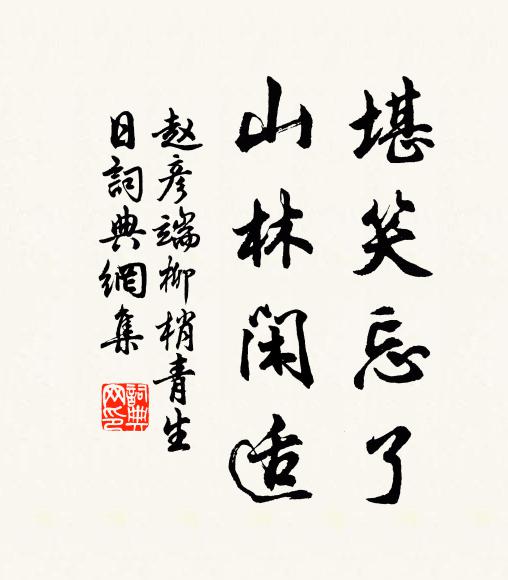 堪笑忘了
山林闲适
赵彦端柳梢青生
日詞典網集
詞典
网印